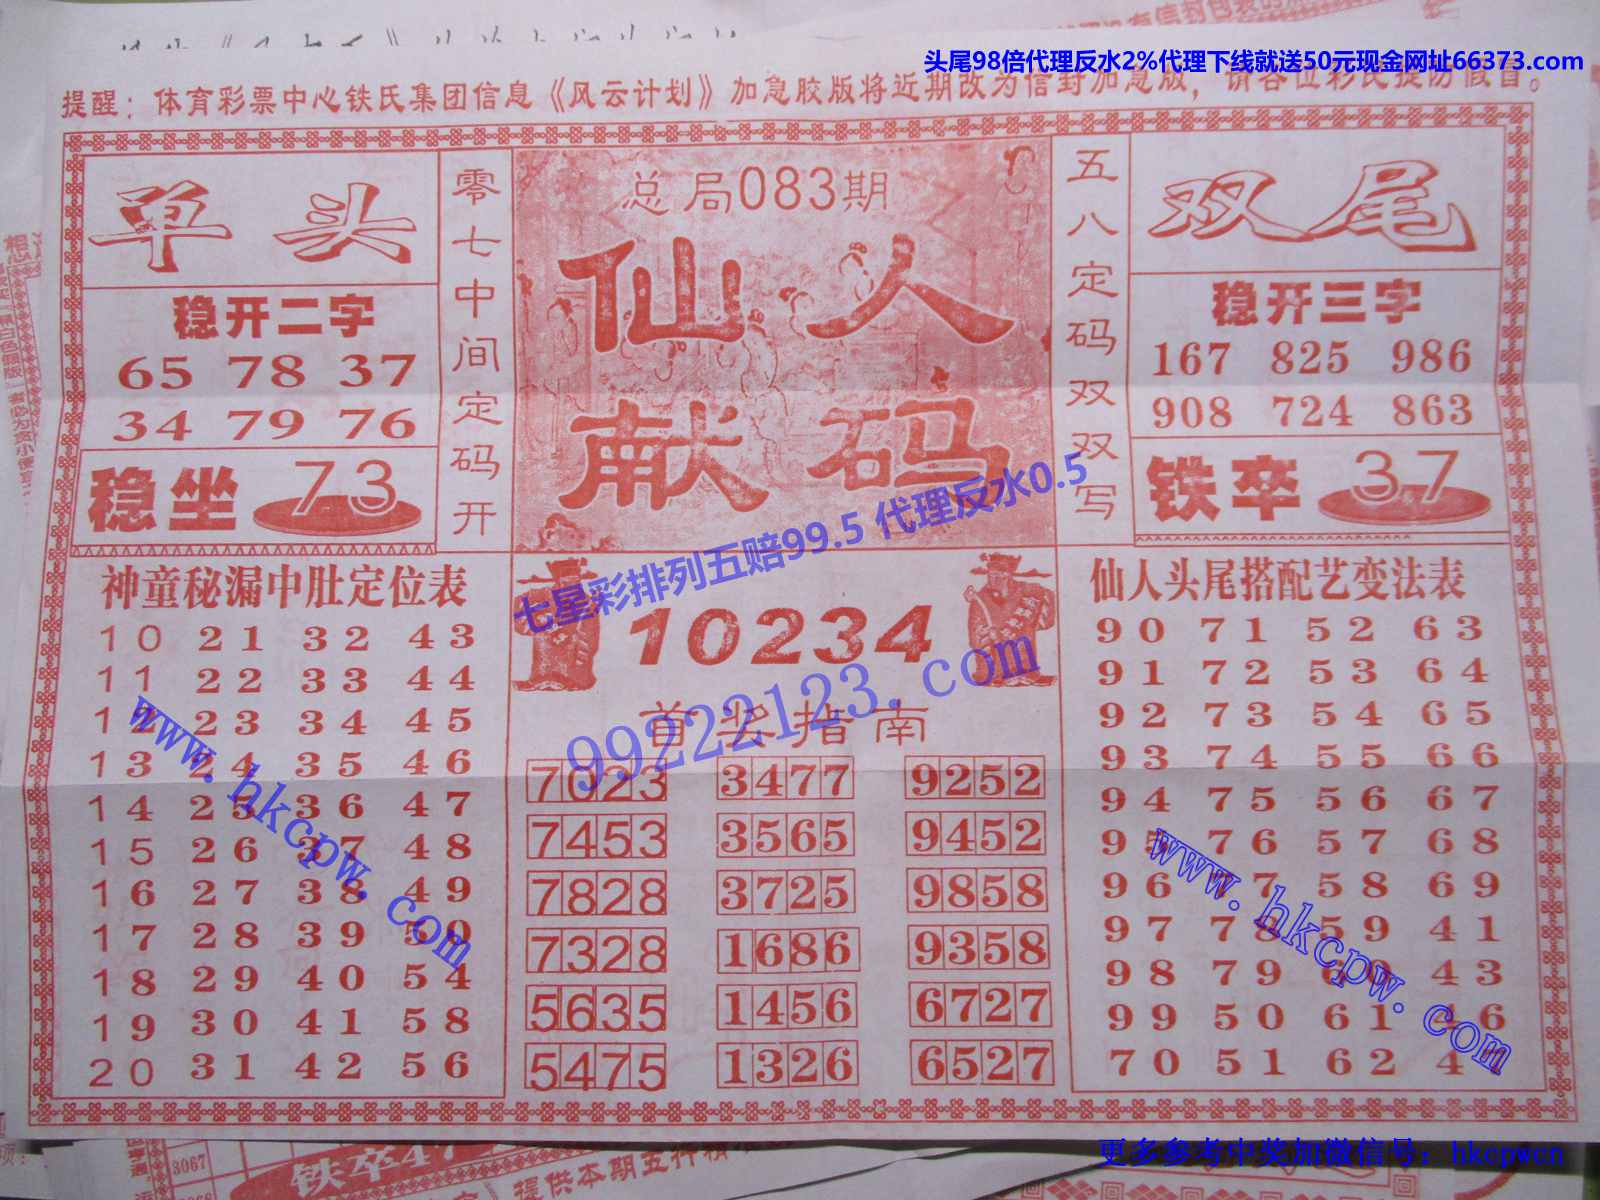 头尾98倍代理反水2%代理下线就送50元现金网址66373.com
提醒：体育彩票中心铁氏集团信息《风云计划》加急胶版将近期改为信封加急版，请各位彩民提防假冒。
单头
稳开二字
65 78 37
34 79 76
稳坐 73
零七中间定码开
总局083期
仙人
献码
五八定码双双写
双尾
稳开三字
167 825 986
908 724 863
铁卒 37
七星彩排列五赔99.5 代理反水0.5
99222123.com
神童秘漏中肚定位表
10 21 32 43
11 22 33 44
12 23 34 45
13 24 35 46
14 25 36 47
15 26 37 48
16 27 38 49
17 28 39 50
18 29 40 54
19 30 41 58
20 31 42 56
www.hkcpw.com
10234
首奖指南
7023 3477 9252
7453 3565 9452
7828 3725 9858
7328 1686 9358
5635 1456 6727
5475 1326 6527
仙人头尾搭配艺变法表
90 71 52 63
91 72 53 64
92 73 54 65
93 74 55 66
94 75 56 67
95 76 57 68
96 77 58 69
97 78 59 41
98 79 60 43
99 50 61 46
70 51 62 4
www.hkcpw.com
更多参考中奖加微信号：hkcpwcn
3067
铁卒47
提供本期五行精